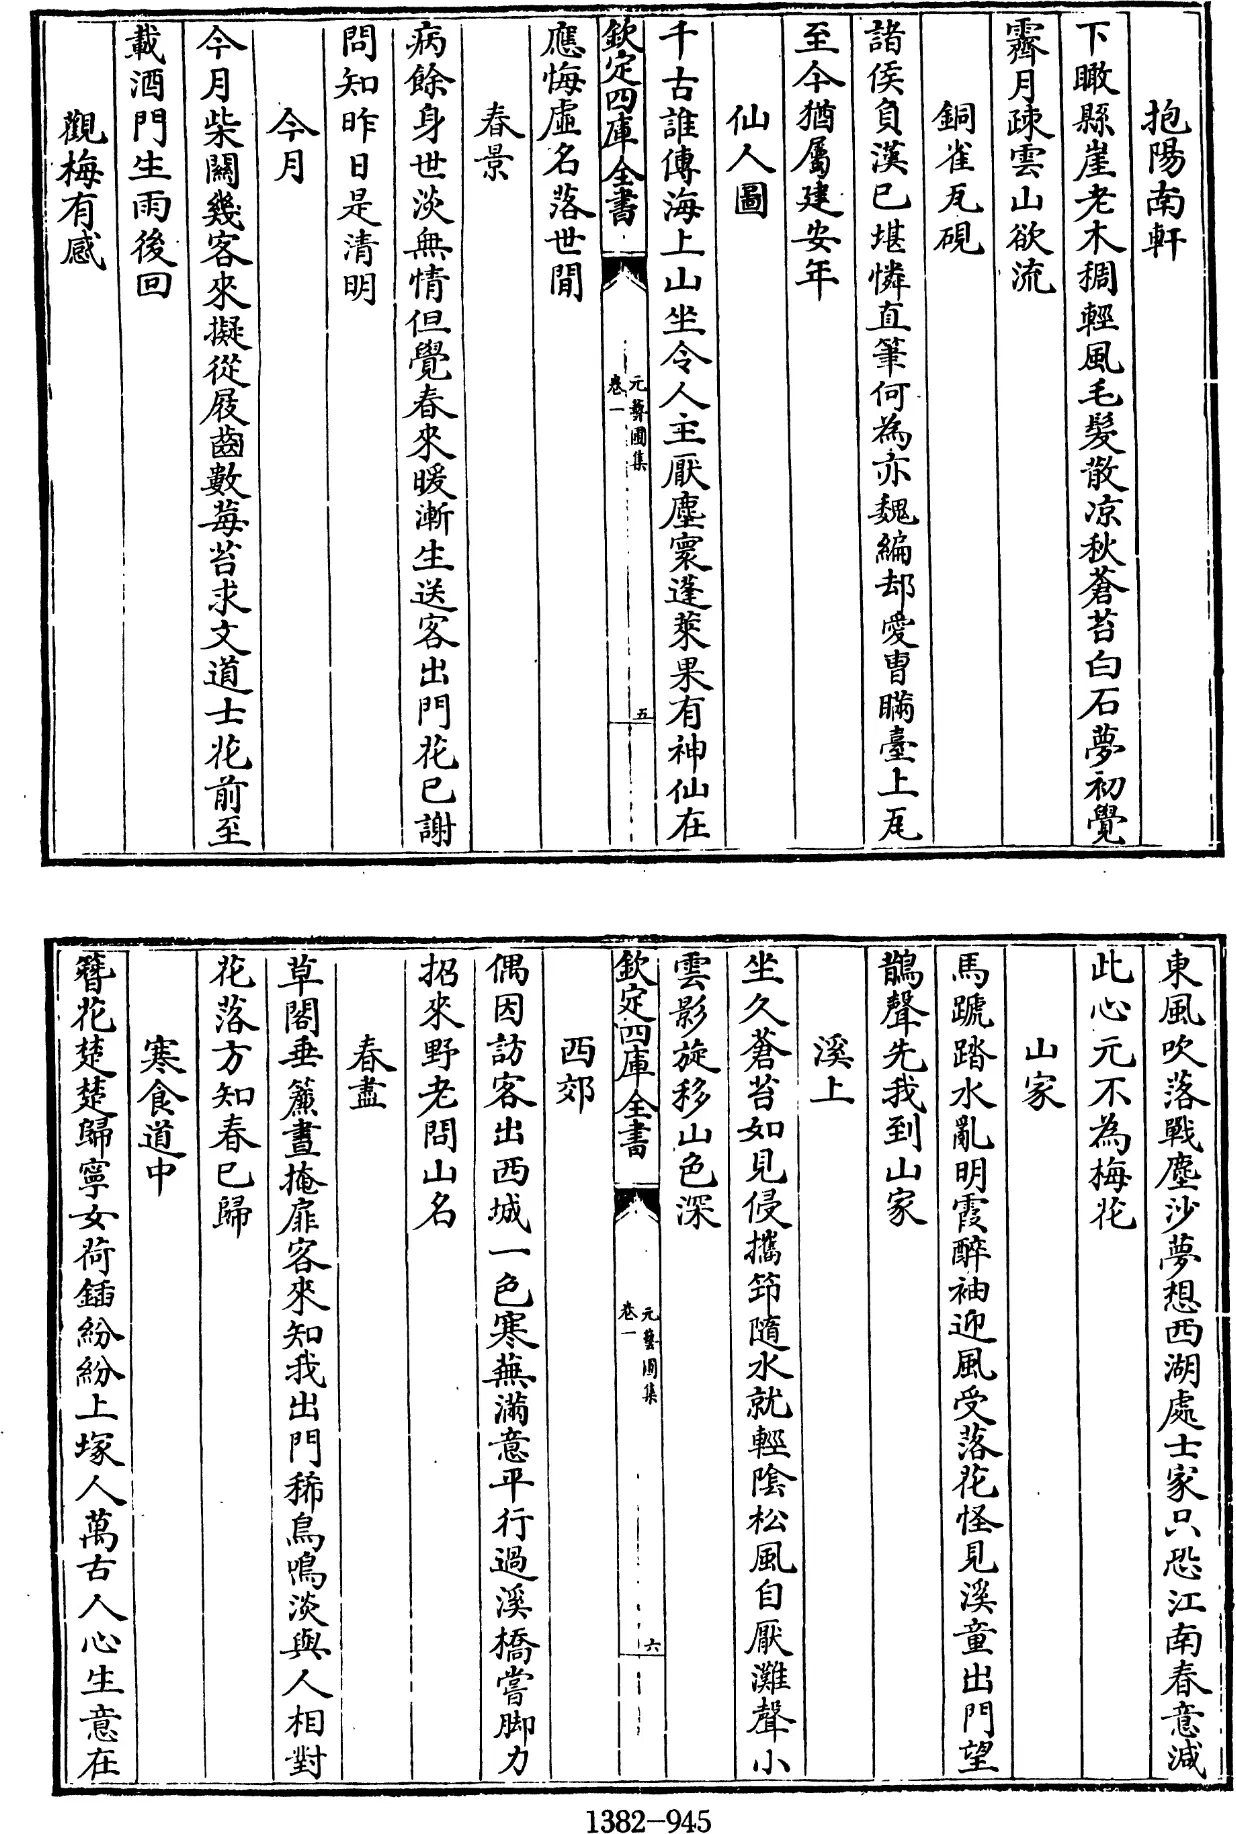 抱陽南軒
下瞰縣崖老木稠輕風毛髮散凉秋蒼苔白石夢初覺
霽月疎雲山欲流
銅雀瓦硯
諸侯負漢已堪憐直筆何為亦魏編却愛曹瞞臺上瓦
至今猶屬建安年
仙人圖
千古誰傳海上山坐令人主厭塵寰蓬萊果有神仙在
欽定四庫全書
元藝圃集
卷一
五
應悔虛名落世間
春景
病餘身世淡無情但覺春來暖漸生送客出門花已謝
問知昨日是清明
今月
今月柴關幾客來擬從屐齒數莓苔求文道士花前至
載酒門生雨後回
觀梅有感
東風吹落戰塵沙夢想西湖處士家只恐江南春意減
此心元不為梅花
山家
馬蹏踏水亂明霞醉袖迎風受落花怪見溪童出門望
鵲聲先我到山家
溪上
坐久蒼苔如見侵攜筇隨水就輕陰松風自厭灘聲小
雲影旋移山色深
欽定四庫全書
元藝圃集
卷一
六
西郊
偶因訪客出西城一色寒蕪滿意平行過溪橋嘗脚力
招來野老問山名
春盡
草閣垂簾晝掩扉客來知我出門稀鳥鳴淡與人相對
花落方知春已歸
寒食道中
簪花楚楚歸寧女荷鍤紛紛上塚人萬古人心生意在
1382-945